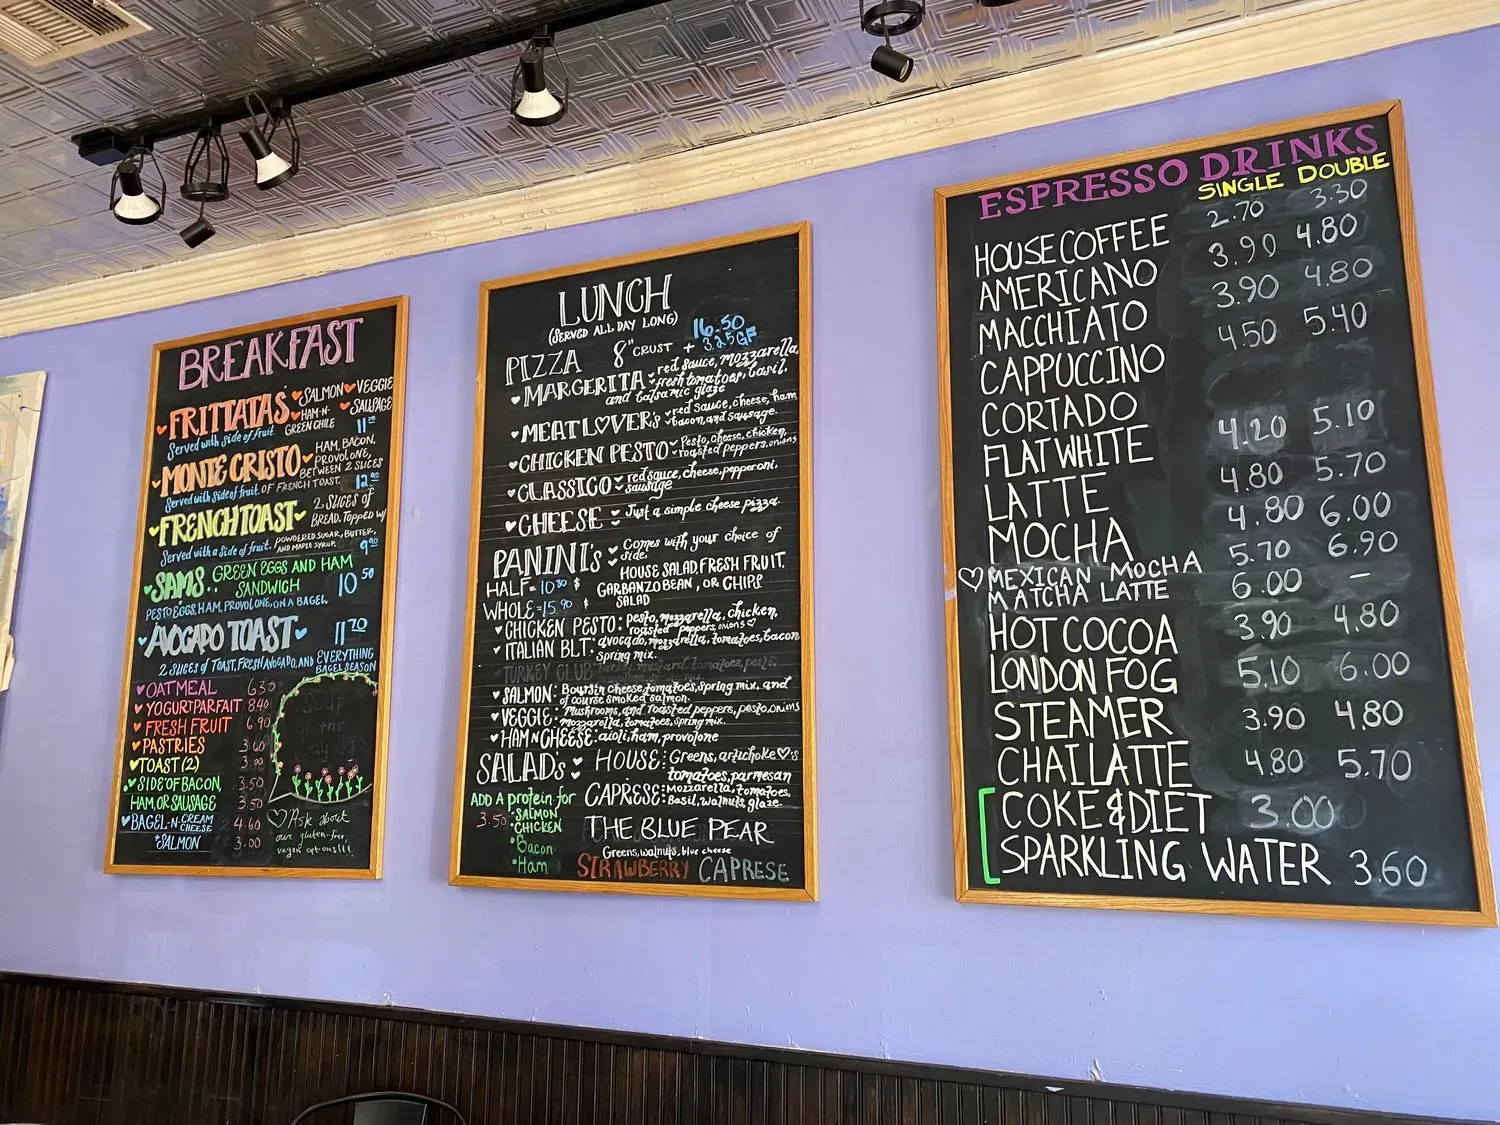 BREAKFAST
FRITTATAS SALMON VEGGIE
HAM-N-GREEN CHILE SAUSAGE
Served with side of fruit 11.70
MONTE CRISTO HAM, BACON, PROVOLONE, BETWEEN 2 SLICES
Served with side of fruit OF FRENCH TOAST. 12.90
FRENCH TOAST 2 SLICES of BREAD, TOPPED W/
Served with a side of fruit. POWDERED SUGAR, BUTTER, AND MAPLE SYRUP. 9.90
SAMS.. GREEN EGGS AND HAM
SANDWICH 10.50
PESTO EGGS, HAM, PROVOLONE, ON A BAGEL.
AVOCADO TOAST 11.70
2 SLICES of TOAST, FRESH AVOCADO, AND EVERYTHING BAGEL SEASON
OATMEAL 6.30
YOGURT PARFAIT 8.40
FRESH FRUIT 6.90
PASTRIES 3.60
TOAST (2) 3.00
SIDE OF BACON, 3.50
HAM, OR SAUSAGE 3.50
BAGEL-N-CREAM CHEESE 4.60
SALMON 3.00
Soup of the Day
♡ Ask about
our gluten-free,
vegan options!!!
LUNCH
(SERVED ALL DAY LONG)
PIZZA 8" CRUST 16.50
+ 3.25 GF
MARGERITA red sauce, mozzarella,
fresh tomatoes, basil,
and balsamic glaze
MEAT L♥VER's red sauce, cheese, ham,
bacon, and sausage.
CHICKEN PESTO Pesto, cheese, chicken,
roasted peppers, onions
CLASSICO red sauce, cheese, pepperoni,
sausage
CHEESE Just a simple cheese pizza.
PANINI's Comes with your choice of
side.
HALF = 10.30 $ HOUSE SALAD, FRESH FRUIT,
WHOLE = 15.90 $ GARBANZO BEAN, OR CHIPS
SALAD
CHICKEN PESTO: pesto, mozzarella, chicken,
roasted peppers, onions ♡
ITALIAN BLT: avocado, mozzarella, tomatoes, bacon
spring mix.
TURKEY CLUB: turkey, mustard, tomatoes, pesto,
SALMON: Boursin cheese, tomatoes, spring mix, and
of course smoked salmon.
VEGGIE: Mushrooms, and roasted peppers, pesto, onions
mozzarella, tomatoes, spring mix.
HAM N CHEESE: aioli, ham, provolone
SALAD's HOUSE: Greens, artichoke ♥'s
tomatoes, parmesan
ADD A protein for CAPRESE: Mozzarella, tomatoes,
Basil, walnuts, glaze.
3.50 SALMON
CHICKEN
Bacon
Ham
THE BLUE PEAR
Greens, walnuts, blue cheese
STRAWBERRY CAPRESE
ESPRESSO DRINKS
SINGLE DOUBLE
HOUSE COFFEE 2.70 3.30
AMERICANO 3.90 4.80
MACCHIATO 3.90 4.80
CAPPUCCINO 4.50 5.40
CORTADO
FLAT WHITE 4.20 5.10
LATTE 4.80 5.70
MOCHA 4.80 6.00
♡ MEXICAN MOCHA 5.70 6.90
MATCHA LATTE 6.00 —
HOT COCOA 3.90 4.80
LONDON FOG 5.10 6.00
STEAMER 3.90 4.80
CHAI LATTE 4.80 5.70
COKE & DIET 3.00
SPARKLING WATER 3.60